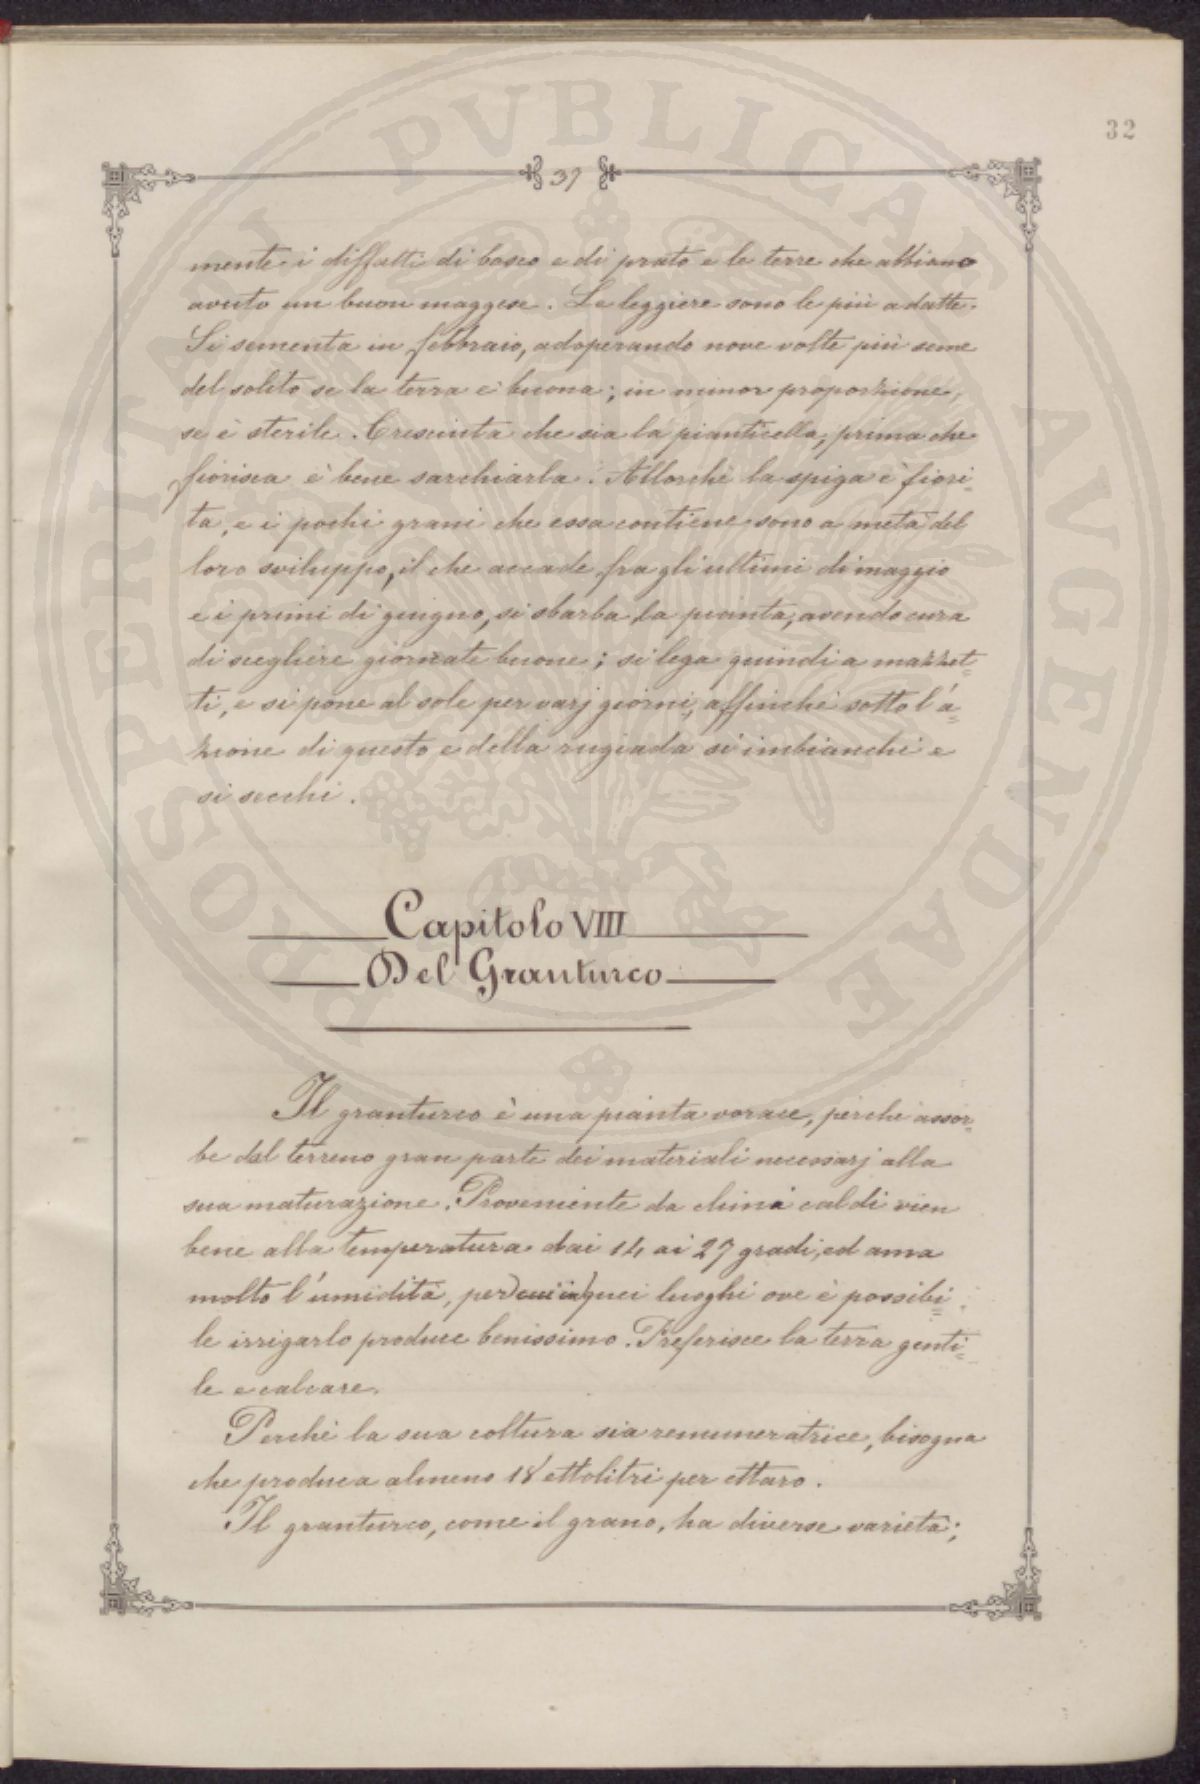 32
37
mente i diffatti di bosco e di prato e le terre che abbiano
avuto un buon maggese. Le leggiere sono le più adatte.
Si sementa in febbraio, adoperando nove volte più seme
del solito se la terra è buona; in minor proporzione,
se è sterile. Cresciuta che sia la pianticella, prima che
fiorisca è bene sarchiarla. Allorchè la spiga è fiori-
ta, e i pochi grani che essa contiene sono a metà del
loro sviluppo, il che accade fra gli ultimi di maggio
e i primi di giugno, si sbarba la pianta, avendo cura
di scegliere giornate buone; si lega quindi a mazzet=
ti, e si pone al sole per varj giorni, affinchè sotto l'a=
zione di questo e della rugiada si imbianchi e
si secchi.
Capitolo VIII
Del Granturco
Il granturco è una pianta vorace, perchè assor=
be dal terreno gran parte dei materiali necessarj alla
sua maturazione. Proveniente da climi caldi vien
bene alla temperatura dai 14 ai 27 gradi, ed ama
molto l'umidità, per cui in quei luoghi ove è possibi=
le irrigarlo produce benissimo. Preferisce la terra genti=
le e calcare.
Perchè la sua coltura sia remuneratrice, bisogna
che produca almeno 18 ettolitri per ettaro.
Il granturco, come il grano, ha diverse varietà;
PROSPERITATI PVBLICAE AVGENDAE